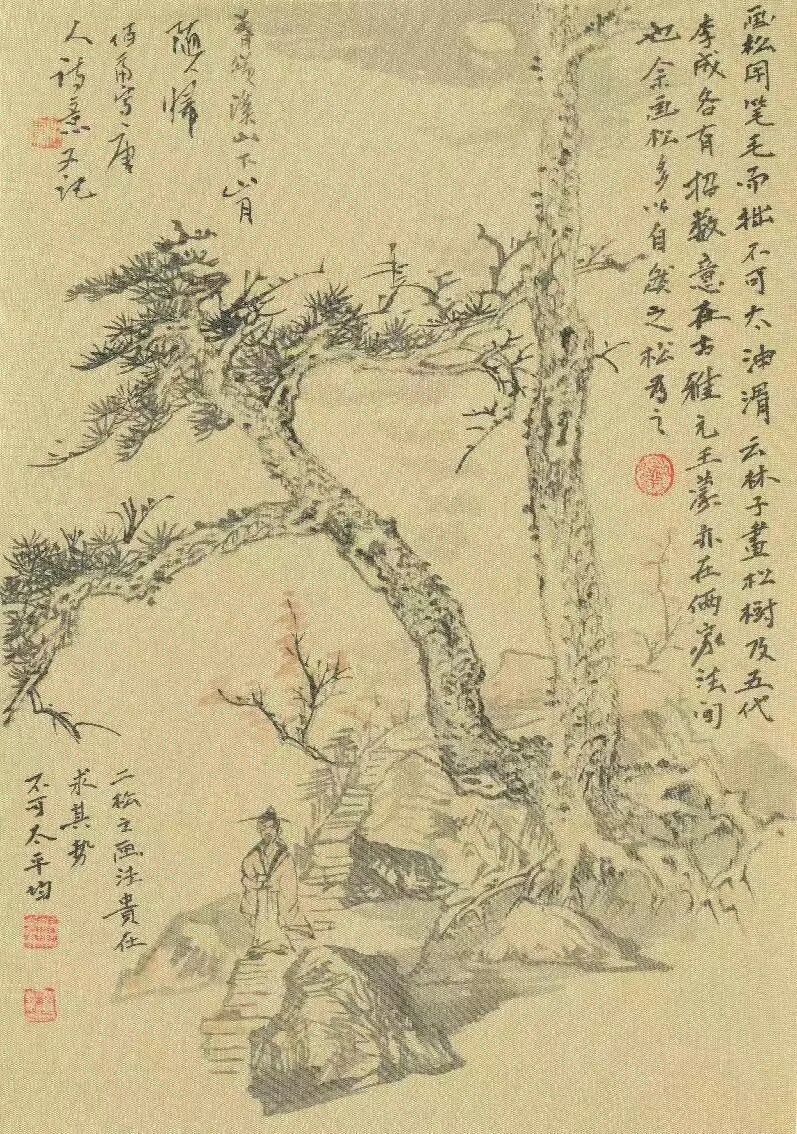 画松用笔毛而拙不可太油滑云林子畫松樹及五代
李成各有招数意在古雅元王蒙亦在俩家法间
也余画松多以自然之松为之
山下山月
随人帰
写唐
人詩意又记
二松之画法貴在
求其势
不可太平均